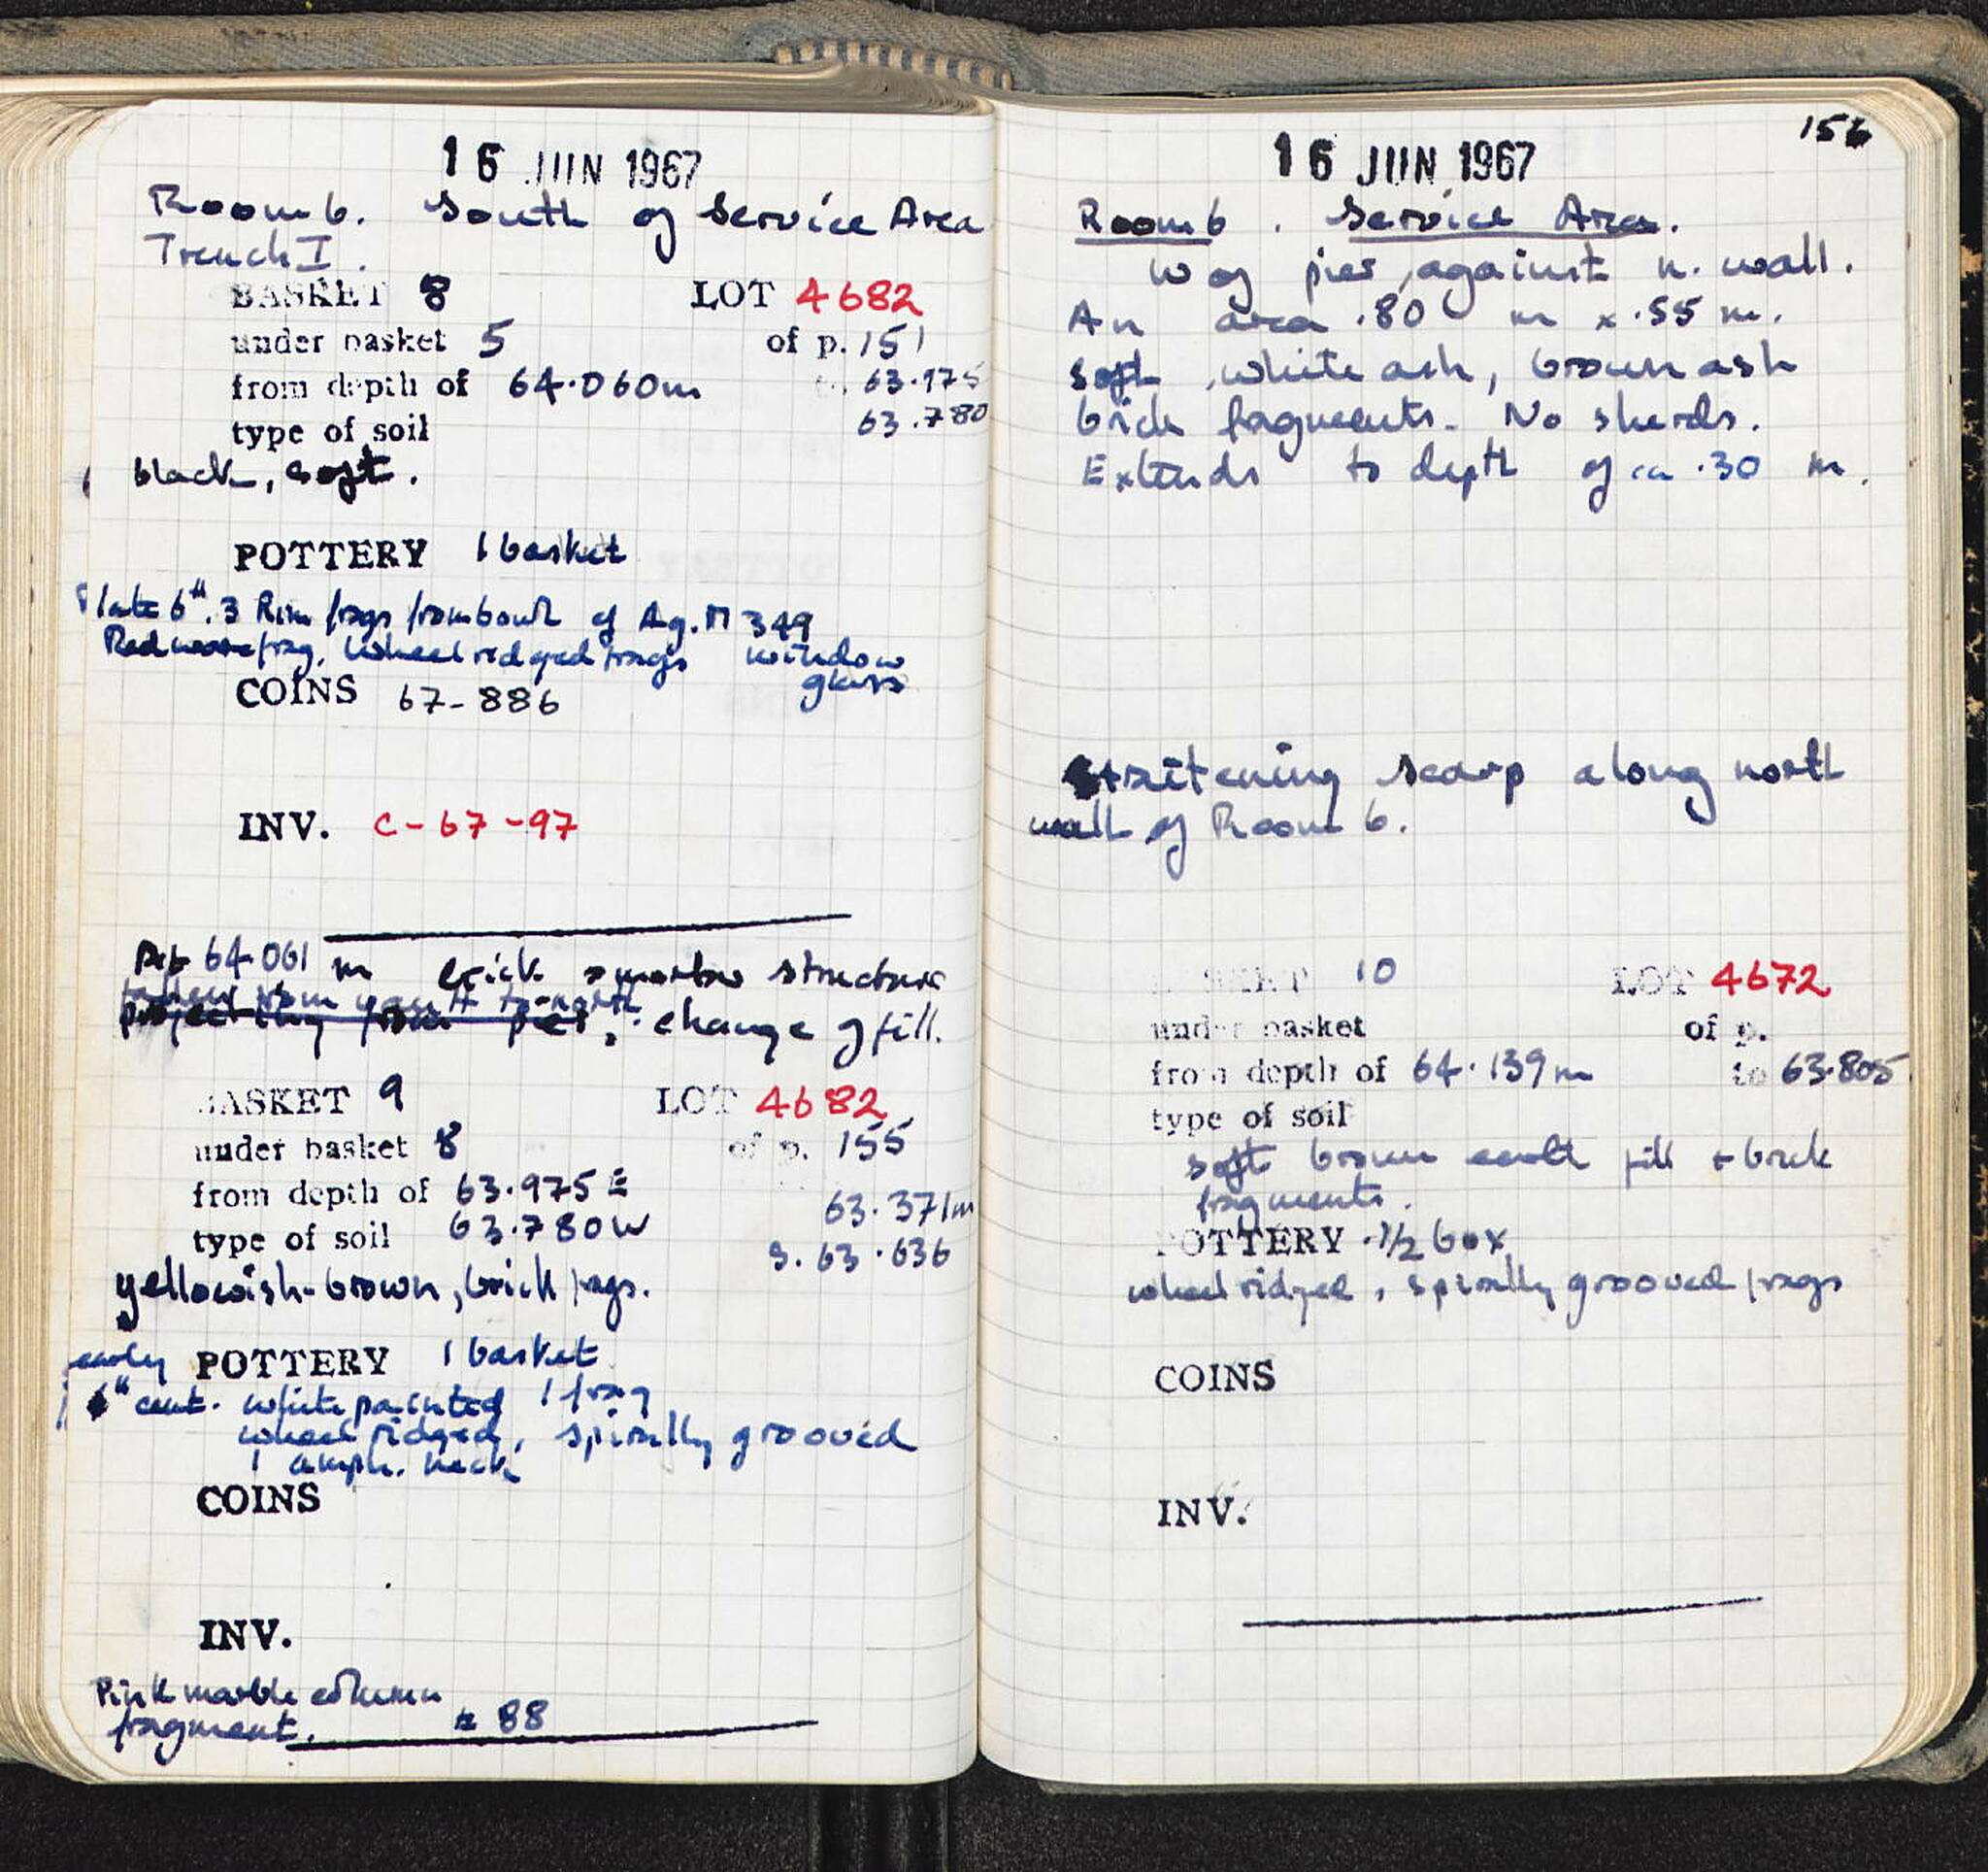 16 JUN 1967
Room 6. South of Service Area
Trench I.
BASKET 8 LOT 4682
under basket 5 of p. 151
from depth of 64.060m to 63.975
type of soil 63.780
black, soft.
POTTERY 1 basket
late 6th. 3 Rim frags from bowl of Ag. M 349
Red ware frag, wheel ridged frags window
glass
COINS 67-886
INV. C-67-97
64.061 m brick + mortar structure
projecting from pier, change of fill.
BASKET 9 LOT 4682
under basket 8 of p. 155
from depth of 63.975 E 63.371m
type of soil 63.780 W S. 63.636
yellowish-brown, brick frags.
early POTTERY 1 basket
6th cent. white painted 1 frag
wheel ridged, spirally grooved
1 amph. neck
COINS
INV.
Pink marble column
fragment. 88
156
16 JUN 1967
Room 6. Service Area.
W of pier, against n. wall.
An area .80 m x .55 m.
soft, white ash, brown ash
brick fragments. No sherds.
Extends to depth of ca .30 m.
straitening scarp along north
wall of Room 6.
BASKET 10 LOT 4672
under basket of p.
from depth of 64.139m to 63.805
type of soil
soft brown earth fill + brick
fragments.
POTTERY 1/2 box
wheel ridged, spirally grooved frags
COINS
INV.